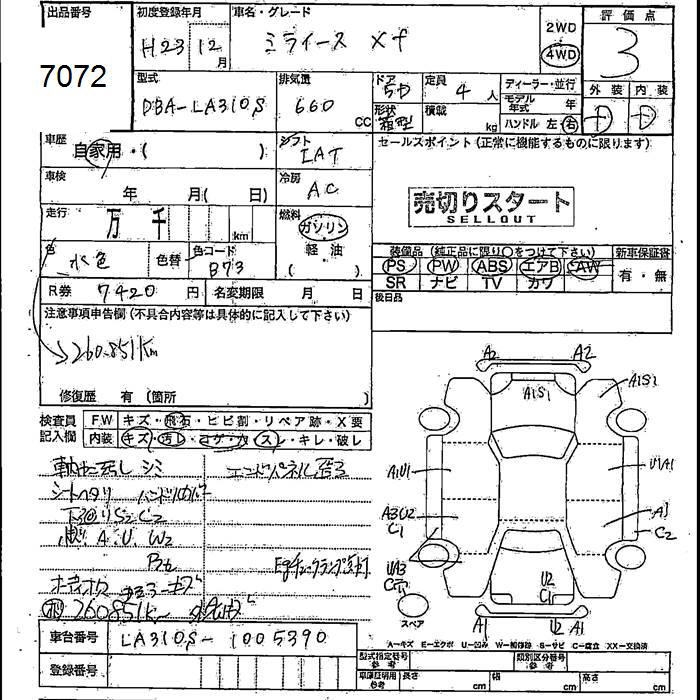 出品番号 初度登録年月 車名・グレード 評価点
7072 H23 12月 ミライース Xf 2WD 4WD 3
型式 排気量 ドア 定員 ディーラー・並行 外装 内装
DBA-LA310S 660 CC 5D 4人 モデル年式 年 D D
形状 箱型 積載 kg ハンドル 左・右
車歴 自家用・( ) シフト IAT セールスポイント (正常に機能するものに限ります)
車検 年 月( 日) 冷房 AC 売切りスタート
SELLOUT
走行 万 千 km 燃料 ガソリン
軽・油
( )
色 水色 色替 色コード B73
装備品 (純正品に限り○をつけて下さい) 新車保証書
PS PW ABS エアB AW 有・無
SR ナビ TV カワ
R券 7420円 名変期限 月 日 後日品
注意事項申告欄 (不具合内容等は具体的に記入して下さい)
260.851Km
修復歴 有 (箇所 )
検査員記入欄 FW キズ・飛石・ヒビ割・リペア跡・X要
内装 キズ・汚レ・コゲ・カ・スレ・キレ・破レ
シミ エンドパネル
シートヘタリ ハンドル
下回りS2C2
A.U.W2
Egチェックランプ点灯
オーディオ
260851K
A2 A2
A1S1 A1S1
A1U1 U1A1
A3U2 C1 A1 C2
UA3 U2 C1
スペア A1 U2 A1
A-キズ E-エクボ U-凹み W-補修跡 S-サビ C-腐立 XX-交換済
車台番号 LA310S-1005390
型式指定番号 参考 類別区分番号 参考
登録番号 車庫証明用 参考 長さ cm 幅 cm 高さ cm